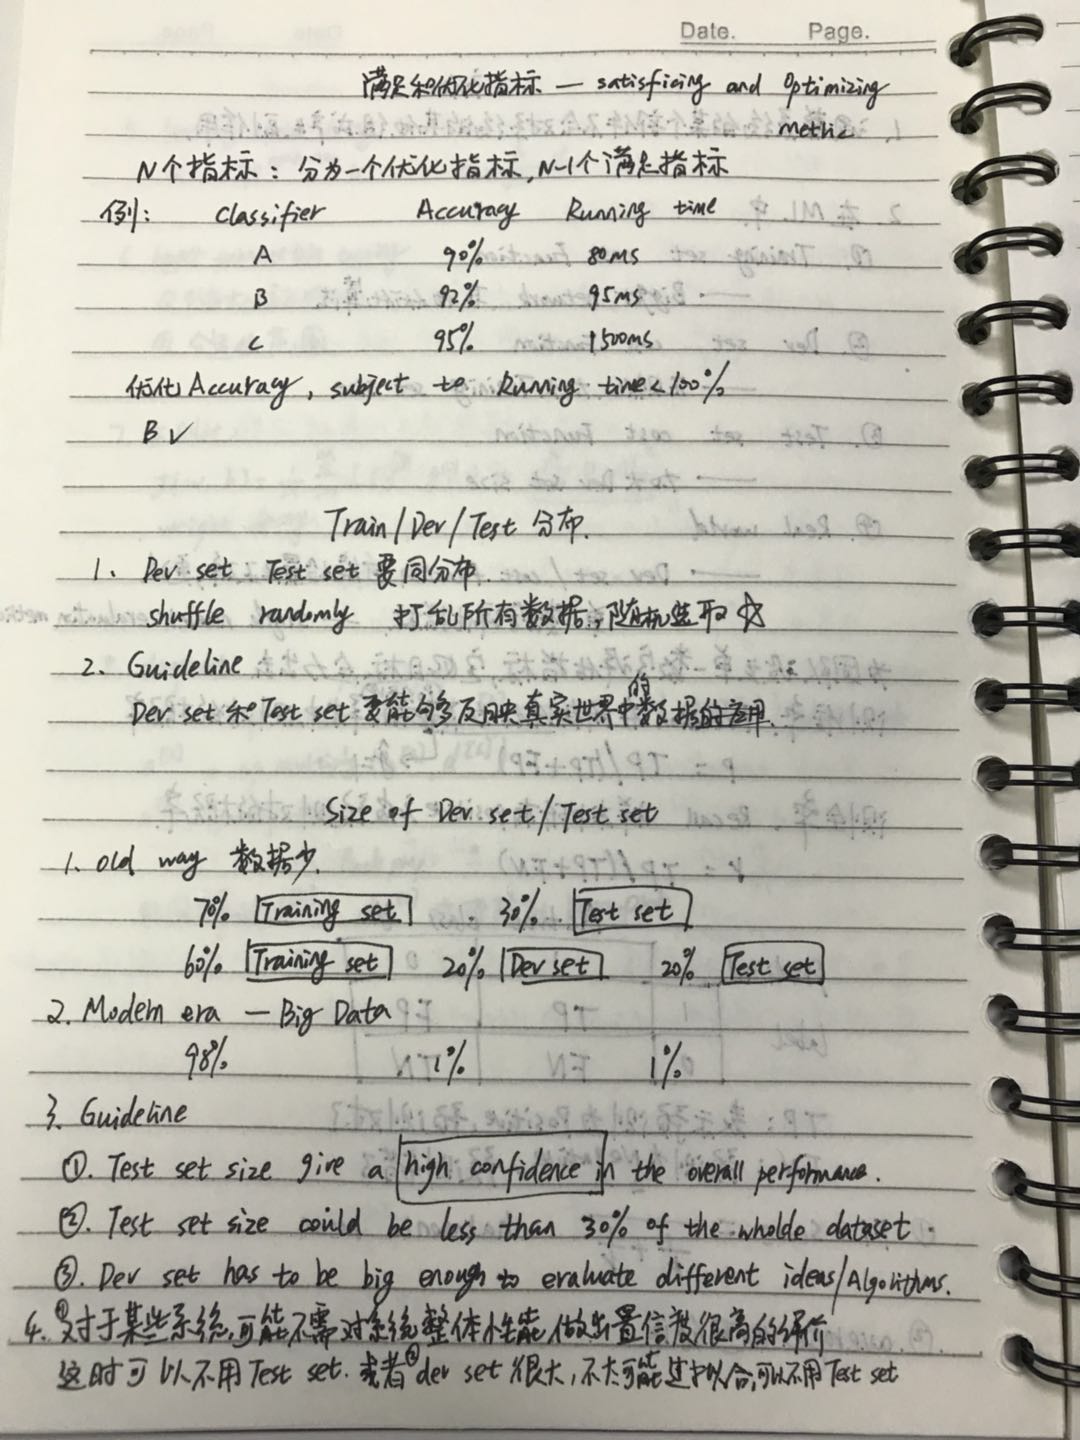 Date. Page.
满足和优化指标 — satisficing and Optimizing
metric
N个指标：分为一个优化指标，N-1个满足指标
例： Classifier Accuracy Running time
A 90% 80ms
B 92% 95ms
C 95% 1500ms
优化Accuracy, subject to Running time<100%
B ✓
Train/Dev/Test 分布.
1、 Dev set Test set 要同分布.
shuffle randomly 打乱所有数据，随机选取 ☆
2. Guideline
Dev set 和 Test set 要能够多反映真实世界中的数据的应用.
Size of Dev set/Test set
1. old way 数据少.
70% Training set . 30% Test set
60% Training set 20% Dev set 20% Test set
2. Modern era — Big Data
98% 1% 1%
3. Guideline
①. Test set size give a high confidence in the overall performance.
②. Test set size could be less than 30% of the wholde dataset.
③. Dev set has to be big enough to evaluate different ideas/Algorithms.
4. ①对于某些系统，可能不需对系统整体性能做出置信度很高的评价
这时可以不用Test set. 或者②dev set 很大，不太可能过拟合，可以不用Test set